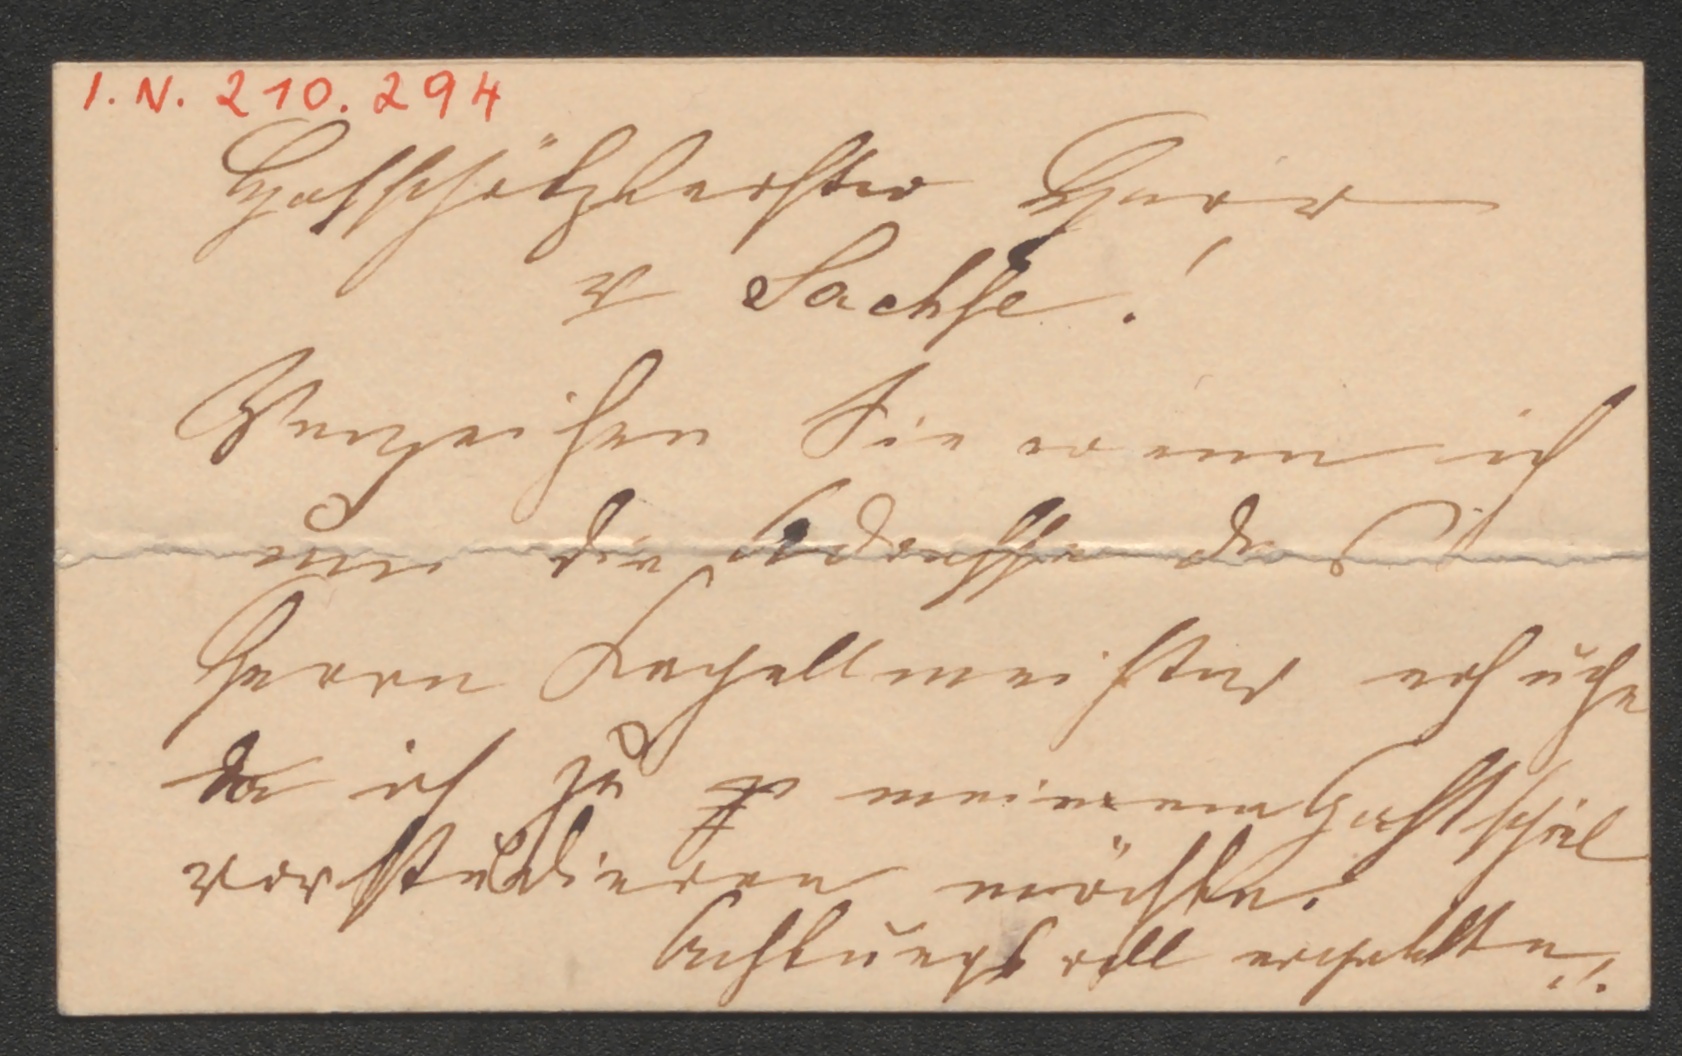 I.N. 210.294
Hochschätzbarster Herr
v Sachse!
Verzeihen Sie wenn ich
um die Adresse des
Herrn Kapellmeisters ersuche
da ich zu meinem Gastspiel
vorstudieren möchte.
Achtungsvoll